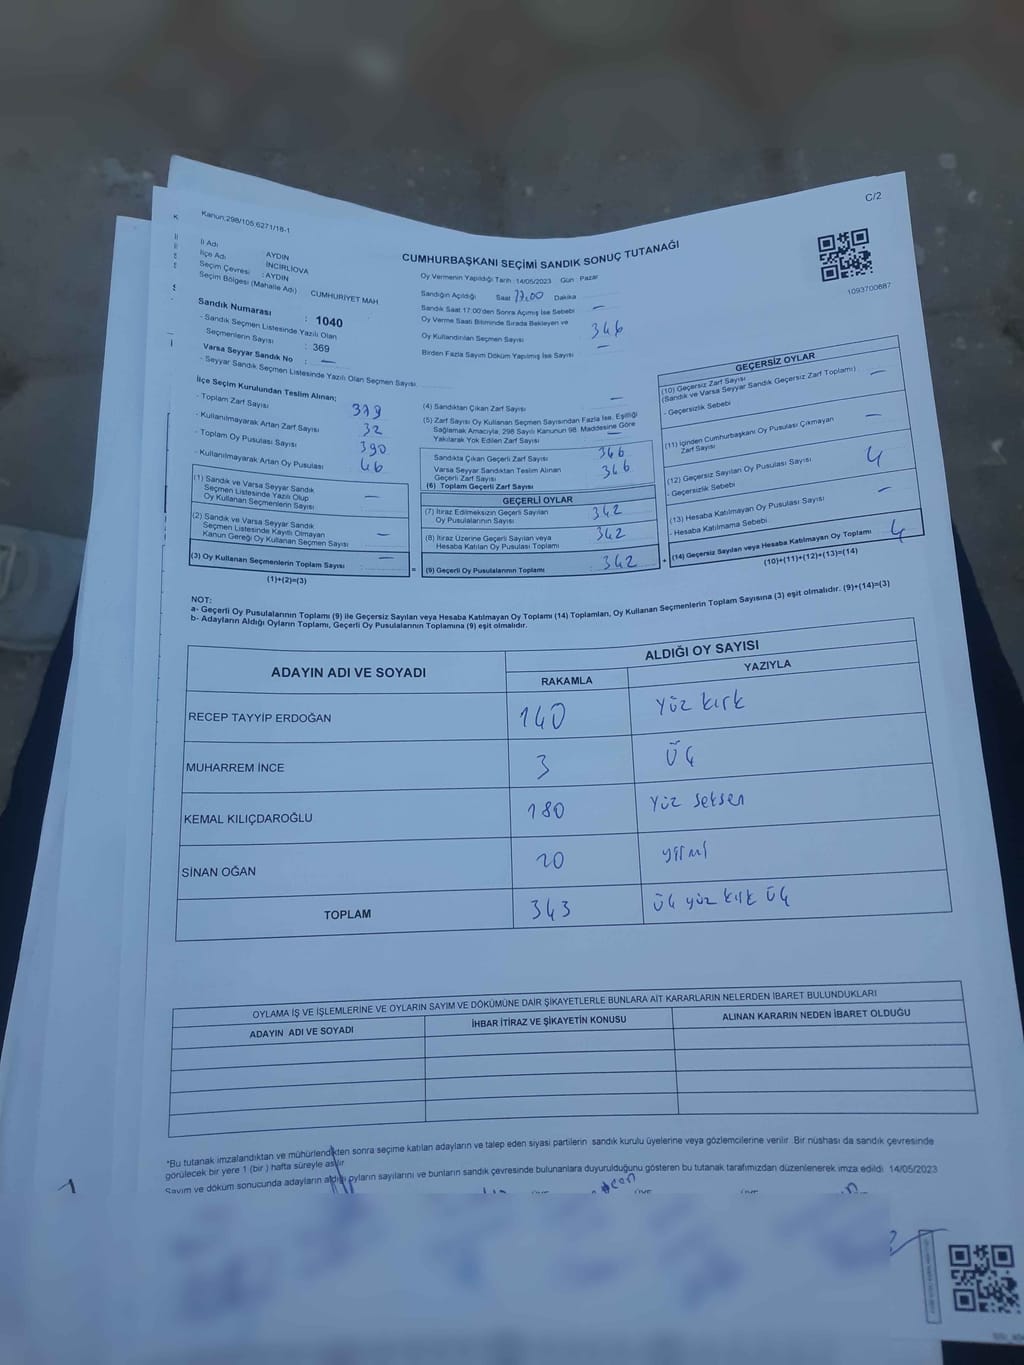 C/2
Kanun:298/105,6271/18-1
CUMHURBAŞKANI SEÇİMİ SANDIK SONUÇ TUTANAĞI
1093700687
İl Adı : AYDIN
İlçe Adı : İNCİRLİOVA
Seçim Çevresi : AYDIN
Seçim Bölgesi (Mahalle Adı) : CUMHURİYET MAH
Sandık Numarası : 1040
- Sandık Seçmen Listesinde Yazılı Olan
Seçmenlerin Sayısı : 369
Varsa Seyyar Sandık No : —
- Seyyar Sandık Seçmen Listesinde Yazılı Olan Seçmen Sayısı
Oy Vermenin Yapıldığı Tarih : 14/05/2023 Gün : Pazar
Sandığın Açıldığı Saat 17.00 Dakika
Sandık Saat 17:00'den Sonra Açımış İse Sebebi —
Oy Verme Saati Bitiminde Sırada Bekleyen ve
Oy Kullandırılan Seçmen Sayısı 346
Birden Fazla Sayım Döküm Yapılmış İse Sayısı —
İlçe Seçim Kurulundan Teslim Alınan;
- Toplam Zarf Sayısı 379
- Kullanılmayarak Artan Zarf Sayısı 32
- Toplam Oy Pusulası Sayısı 390
- Kullanılmayarak Artan Oy Pusulası 46
(1) Sandık ve Varsa Seyyar Sandık
Seçmen Listesinde Yazılı Olup
Oy Kullanan Seçmenlerin Sayısı —
(2) Sandık ve Varsa Seyyar Sandık
Seçmen Listesinde Kayıtlı Olmayan
Kanun Gereği Oy Kullanan Seçmen Sayısı —
(3) Oy Kullanan Seçmenlerin Toplam Sayısı —
(1)+(2)=(3)
(4) Sandıktan Çıkan Zarf Sayısı —
(5) Zarf Sayısı Oy Kullanan Seçmen Sayısından Fazla İse, Eşitliği
Sağlamak Amacıyla, 298 Sayılı Kanunun 98. Maddesine Göre
Yakılarak Yok Edilen Zarf Sayısı —
Sandıkta Çıkan Geçerli Zarf Sayısı 346
Varsa Seyyar Sandıktan Teslim Alınan
Geçerli Zarf Sayısı 346
(6) Toplam Geçerli Zarf Sayısı
GEÇERLİ OYLAR
(7) İtiraz Edilmeksizin Geçerli Sayılan
Oy Pusulalarının Sayısı 342
(8) İtiraz Üzerine Geçerli Sayılan veya
Hesaba Katılan Oy Pusulası Toplamı 342
= (9) Geçerli Oy Pusulalarının Toplamı 342
GEÇERSİZ OYLAR
(10) Geçersiz Zarf Sayısı
(Sandık ve Varsa Seyyar Sandık Geçersiz Zarf Toplamı) —
- Geçersizlik Sebebi
(11) İçinden Cumhurbaşkanı Oy Pusulası Çıkmayan
Zarf Sayısı —
(12) Geçersiz Sayılan Oy Pusulası Sayısı 4
- Geçersizlik Sebebi
(13) Hesaba Katılmayan Oy Pusulası Sayısı —
- Hesaba Katılmama Sebebi
+ (14) Geçersiz Sayılan veya Hesaba Katılmayan Oy Toplamı 4
(10)+(11)+(12)+(13)=(14)
NOT:
a- Geçerli Oy Pusulalarının Toplamı (9) ile Geçersiz Sayılan veya Hesaba Katılmayan Oy Toplamı (14) Toplamları, Oy Kullanan Seçmenlerin Toplam Sayısına (3) eşit olmalıdır. (9)+(14)=(3)
b- Adayların Aldığı Oyların Toplamı, Geçerli Oy Pusulalarının Toplamına (9) eşit olmalıdır.
ADAYIN ADI VE SOYADI
ALDIĞI OY SAYISI
RAKAMLA YAZIYLA
RECEP TAYYİP ERDOĞAN 140 Yüz kırk
MUHARREM İNCE 3 Üç
KEMAL KILIÇDAROĞLU 180 Yüz seksen
SİNAN OĞAN 20 yirmi
TOPLAM 343 üç yüz kırk üç
OYLAMA İŞ VE İŞLEMLERİNE VE OYLARIN SAYIM VE DÖKÜMÜNE DAİR ŞİKAYETLERLE BUNLARA AİT KARARLARIN NELERDEN İBARET BULUNDUKLARI
ADAYIN ADI VE SOYADI İHBAR İTİRAZ VE ŞİKAYETİN KONUSU ALINAN KARARIN NEDEN İBARET OLDUĞU
*Bu tutanak imzalandıktan ve mühürlendikten sonra seçime katılan adayların ve talep eden siyasi partilerin sandık kurulu üyelerine veya gözlemcilerine verilir. Bir nüshası da sandık çevresinde
görülecek bir yere 1 (bir) hafta süreyle asılır
Sayım ve döküm sonucunda adayların aldığı oyların sayılarını ve bunların sandık çevresinde bulunanlara duyurulduğunu gösteren bu tutanak tarafımızdan düzenlenerek imza edildi. 14/05/2023